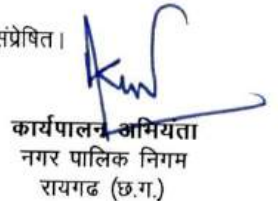 संप्रेषित।
कार्यपालन अभियंता
नगर पालिक निगम
रायगढ (छ.ग.)